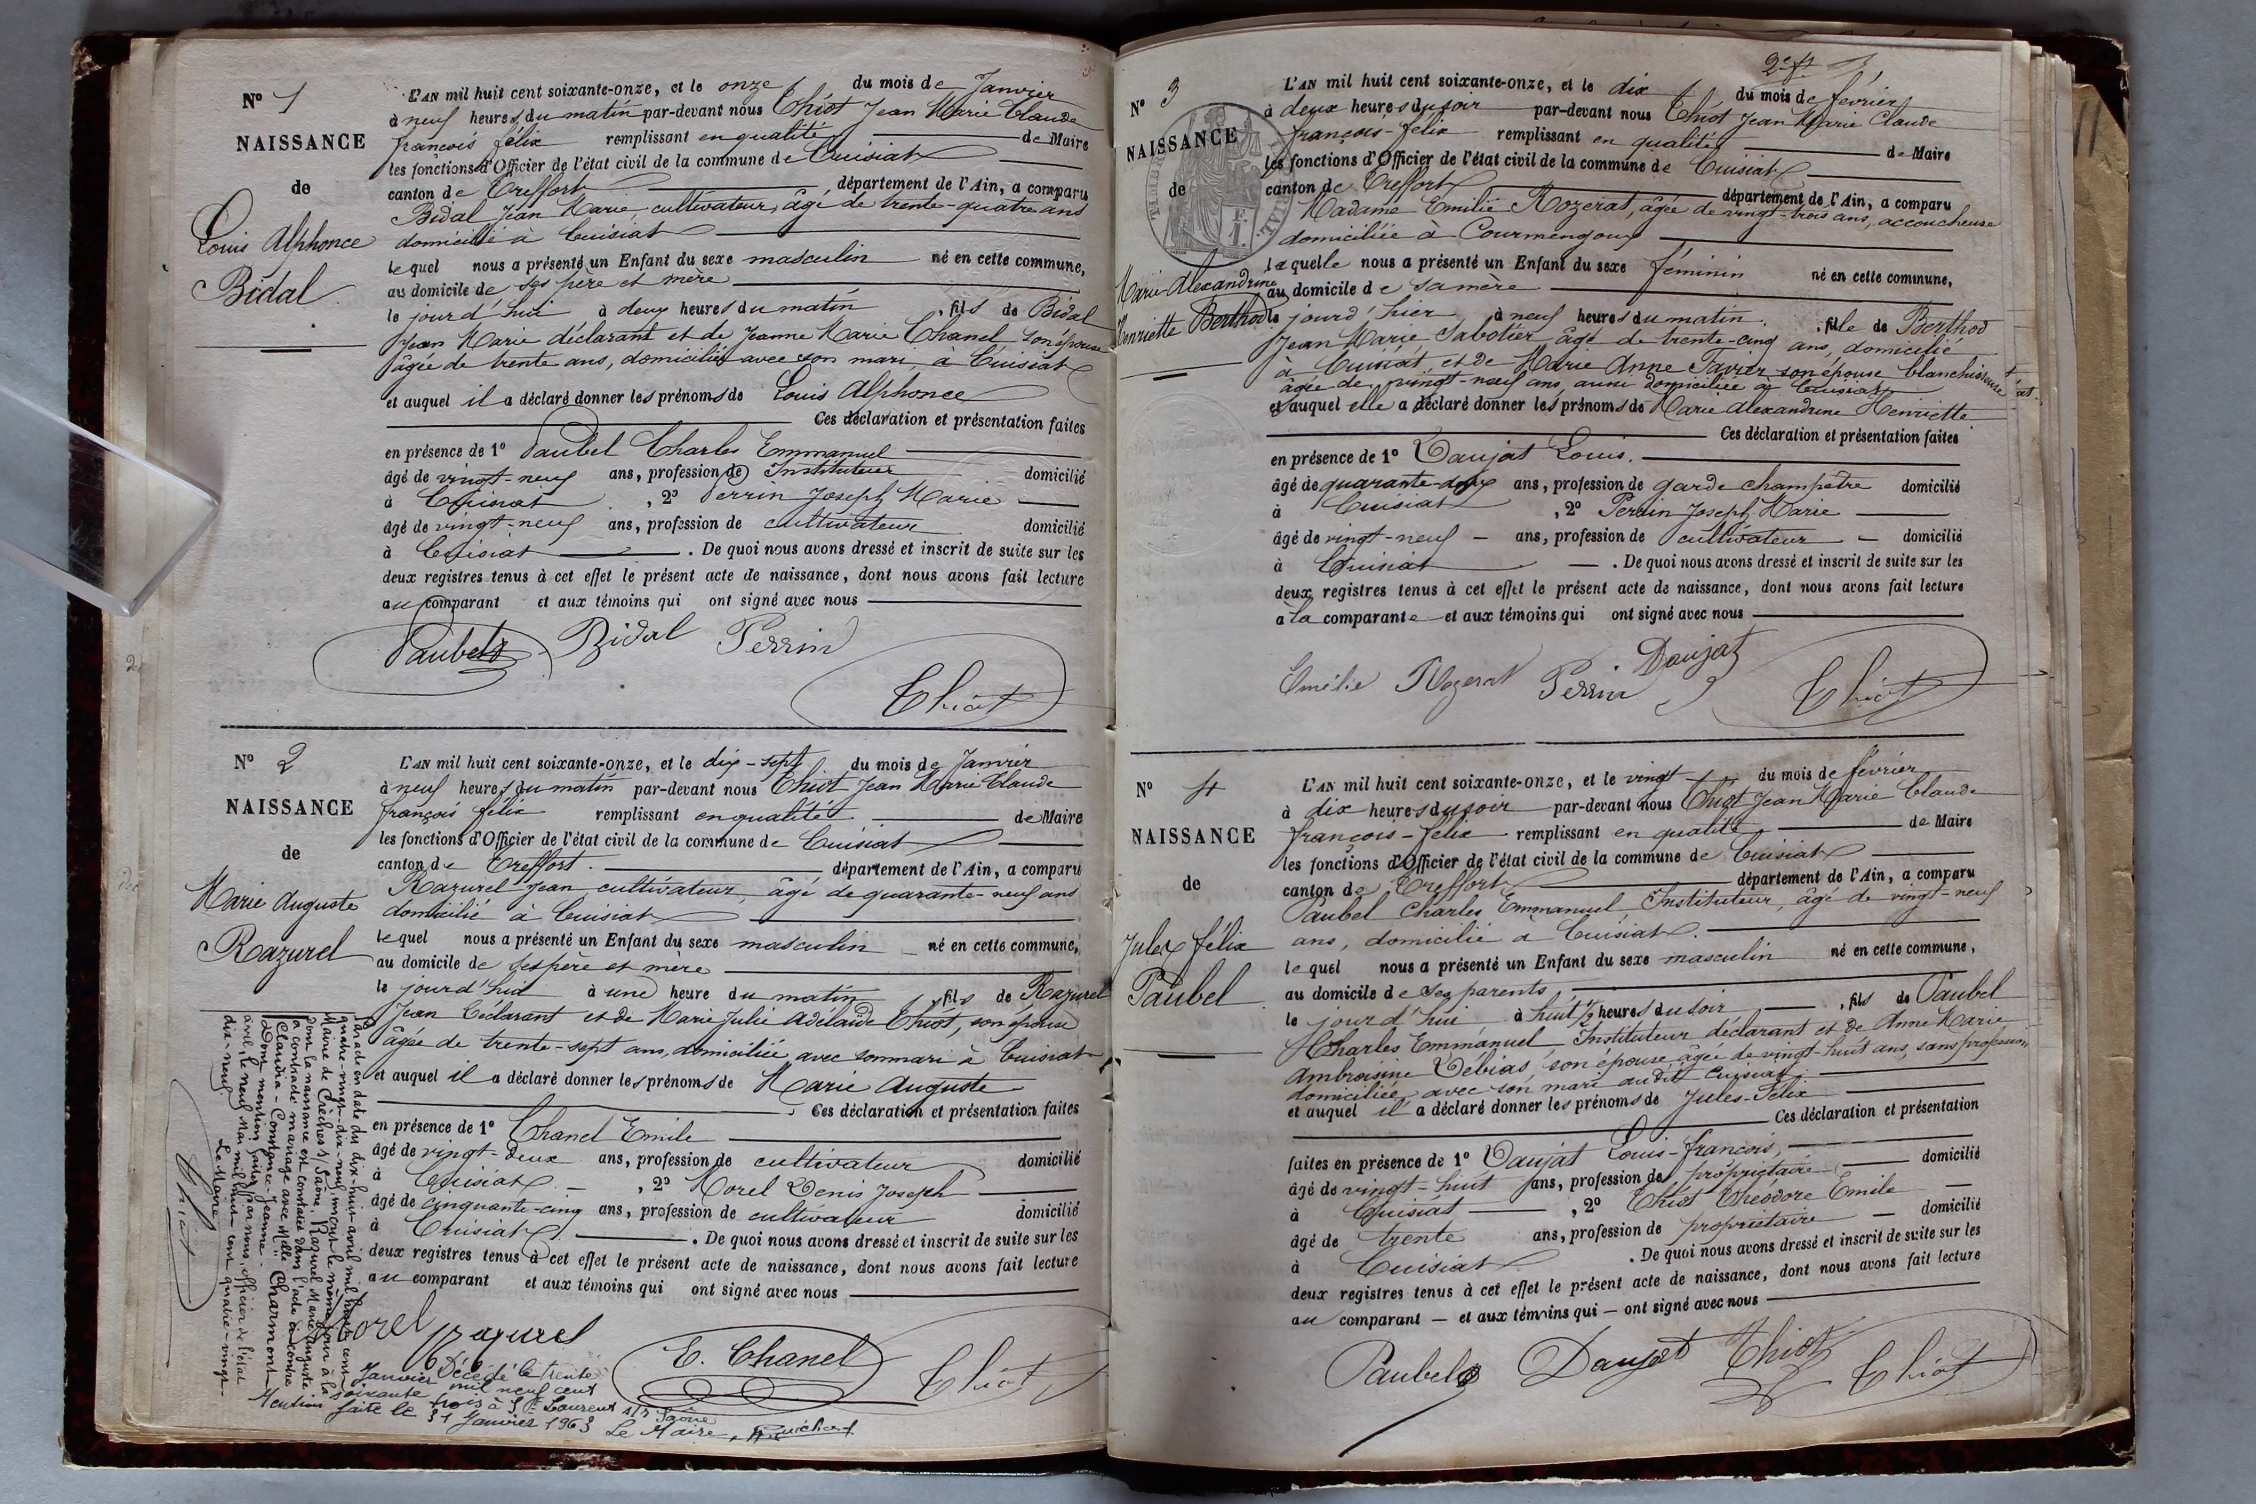 N° 1
NAISSANCE
de
Louis Alphonce
Bidal
L'AN mil huit cent soixante-onze, et le onze du mois de Janvier
à neuf heures du matin par-devant nous Chiot Jean Marie Claude
françois félix remplissant en qualité de Maire
les fonctions d'Officier de l'état civil de la commune de Cuisiat
canton de Treffort département de l'Ain, a comparu
Bidal Jean Marie, cultivateur, âgé de trente-quatre ans
domicilié à Cuisiat
lequel nous a présenté un Enfant du sexe masculin né en cette commune,
au domicile de ses père et mère
le jourd'hui à deux heures du matin, fils de Bidal
Jean Marie déclarant et de Jeanne Marie Chanel, son épouse
âgée de trente ans, domiciliée avec son mari, à Cuisiat
et auquel il a déclaré donner les prénoms de Louis Alphonce
Ces déclaration et présentation faites
en présence de 1° Paubel Charles Emmanuel
âgé de vingt-neuf ans, profession de Instituteur domicilié
à Cuisiat, 2° Perrin Joseph Marie
âgé de vingt-neuf ans, profession de cultivateur domicilié
à Cuisiat. De quoi nous avons dressé et inscrit de suite sur les
deux registres tenus à cet effet le présent acte de naissance, dont nous avons fait lecture
au comparant et aux témoins qui ont signé avec nous
Paubel Bidal Perrin
Chiot
N° 2
NAISSANCE
de
Marie Auguste
Razurel
L'AN mil huit cent soixante-onze, et le dix-sept du mois de Janvier
à neuf heures du matin par-devant nous Chiot Jean Marie Claude
françois félix remplissant en qualité de Maire
les fonctions d'Officier de l'état civil de la commune de Cuisiat
canton de Treffort. département de l'Ain, a comparu
Razurel Jean, cultivateur, âgé de quarante-neuf ans
domicilié à Cuisiat
lequel nous a présenté un Enfant du sexe masculin né en cette commune,
au domicile de ses père et mère
le jourd'hui à une heure du matin, fils de Razurel
Jean Déclarant et de Marie Julie Adélaïde Chiot, son épouse
âgée de trente-sept ans, domiciliée avec son mari à Cuisiat
et auquel il a déclaré donner les prénoms de Marie Auguste
Ces déclaration et présentation faites
en présence de 1° Chanel Emile
âgé de vingt-deux ans, profession de cultivateur domicilié
à Cuisiat, 2° Morel Denis Joseph
âgé de cinquante-cinq ans, profession de cultivateur domicilié
à Cuisiat. De quoi nous avons dressé et inscrit de suite sur les
deux registres tenus à cet effet le présent acte de naissance, dont nous avons fait lecture
au comparant et aux témoins qui ont signé avec nous
Morel Razurel E. Chanel Chiot
Par acte en date du dix-huit avril mil huit cent
quatre-vingt-dix-neuf, inscrit le même jour à la
Mairie de Crèches s/ Saône, Razurel Marie Auguste
dont la naissance est constatée dans l'acte ci-contre
a contracté mariage avec Mlle Charmont
Claudia-Constance-Jeanne.
Dont mention faite par nous, officier de l'état
civil, le neuf Mai mil huit cent quatre-vingt-
dix-neuf.
Le Maire
Chiot
Décédé le trente
Janvier mil neuf cent
soixante trois à St Laurent s/r Saône
Mention faite le 31 Janvier 1963
Le Maire,
2e ft
N° 3
NAISSANCE
de
Marie Alexandrine
Henriette Berthod
L'AN mil huit cent soixante-onze, et le dix du mois de février
à deux heures du soir par-devant nous Chiot Jean Marie Claude
françois-félix remplissant en qualité de Maire
les fonctions d'Officier de l'état civil de la commune de Cuisiat
canton de Treffort département de l'Ain, a comparu
Madame Emilie Rozerat, âgée de vingt-trois ans, accoucheuse
domiciliée à Courmengoux
laquelle nous a présenté un Enfant du sexe féminin né en cette commune,
au domicile de sa mère
le jourd'hier, à neuf heures du matin. fille de Berthod
Jean Marie Sabotier âgé de trente-cinq ans, domicilié
à Cuisiat, et de Marie Anne Favier son épouse blanchisseuse
âgée de vingt-neuf ans, aussi domiciliée à Cuisiat
et auquel elle a déclaré donner les prénoms de Marie Alexandrine Henriette
Ces déclaration et présentation faites
en présence de 1° Daujat Louis.
âgé de quarante-deux ans, profession de garde champêtre domicilié
à Cuisiat, 2° Perrin Joseph Marie
âgé de vingt-neuf ans, profession de cultivateur domicilié
à Cuisiat. De quoi nous avons dressé et inscrit de suite sur les
deux registres tenus à cet effet le présent acte de naissance, dont nous avons fait lecture
à la comparante et aux témoins qui ont signé avec nous
Emélie Rozerat Perrin Daujat Chiot
N° 4
NAISSANCE
de
Jules félix
Paubel
L'AN mil huit cent soixante-onze, et le vingt du mois de février
à dix heures du soir par-devant nous Chiot Jean Marie Claude
françois-félix remplissant en qualité de Maire
les fonctions d'Officier de l'état civil de la commune de Cuisiat
canton de Treffort département de l'Ain, a comparu
Paubel Charles Emmanuel Instituteur, âgé de vingt-neuf
ans, domicilié à Cuisiat.
lequel nous a présenté un Enfant du sexe masculin né en cette commune,
au domicile de ses parents,
le jourd'hui à huit 1/2 heures du soir, fils de Paubel
Charles Emmanuel Instituteur déclarant et de Anne Marie
Ambroisine Débias, son épouse âgée de vingt-huit ans, sans profession
domiciliée avec son mari audit Cuisiat
et auquel il a déclaré donner les prénoms de Jules-Félix
Ces déclaration et présentation
faites en présence de 1° Daujat Louis-françois,
âgé de vingt-huit ans, profession de propriétaire domicilié
à Cuisiat, 2° Chiot Théodore Emile
âgé de trente ans, profession de propriétaire domicilié
à Cuisiat. De quoi nous avons dressé et inscrit de suite sur les
deux registres tenus à cet effet le présent acte de naissance, dont nous avons fait lecture
au comparant et aux témoins qui ont signé avec nous
Paubel Daujat Chiot Chiot